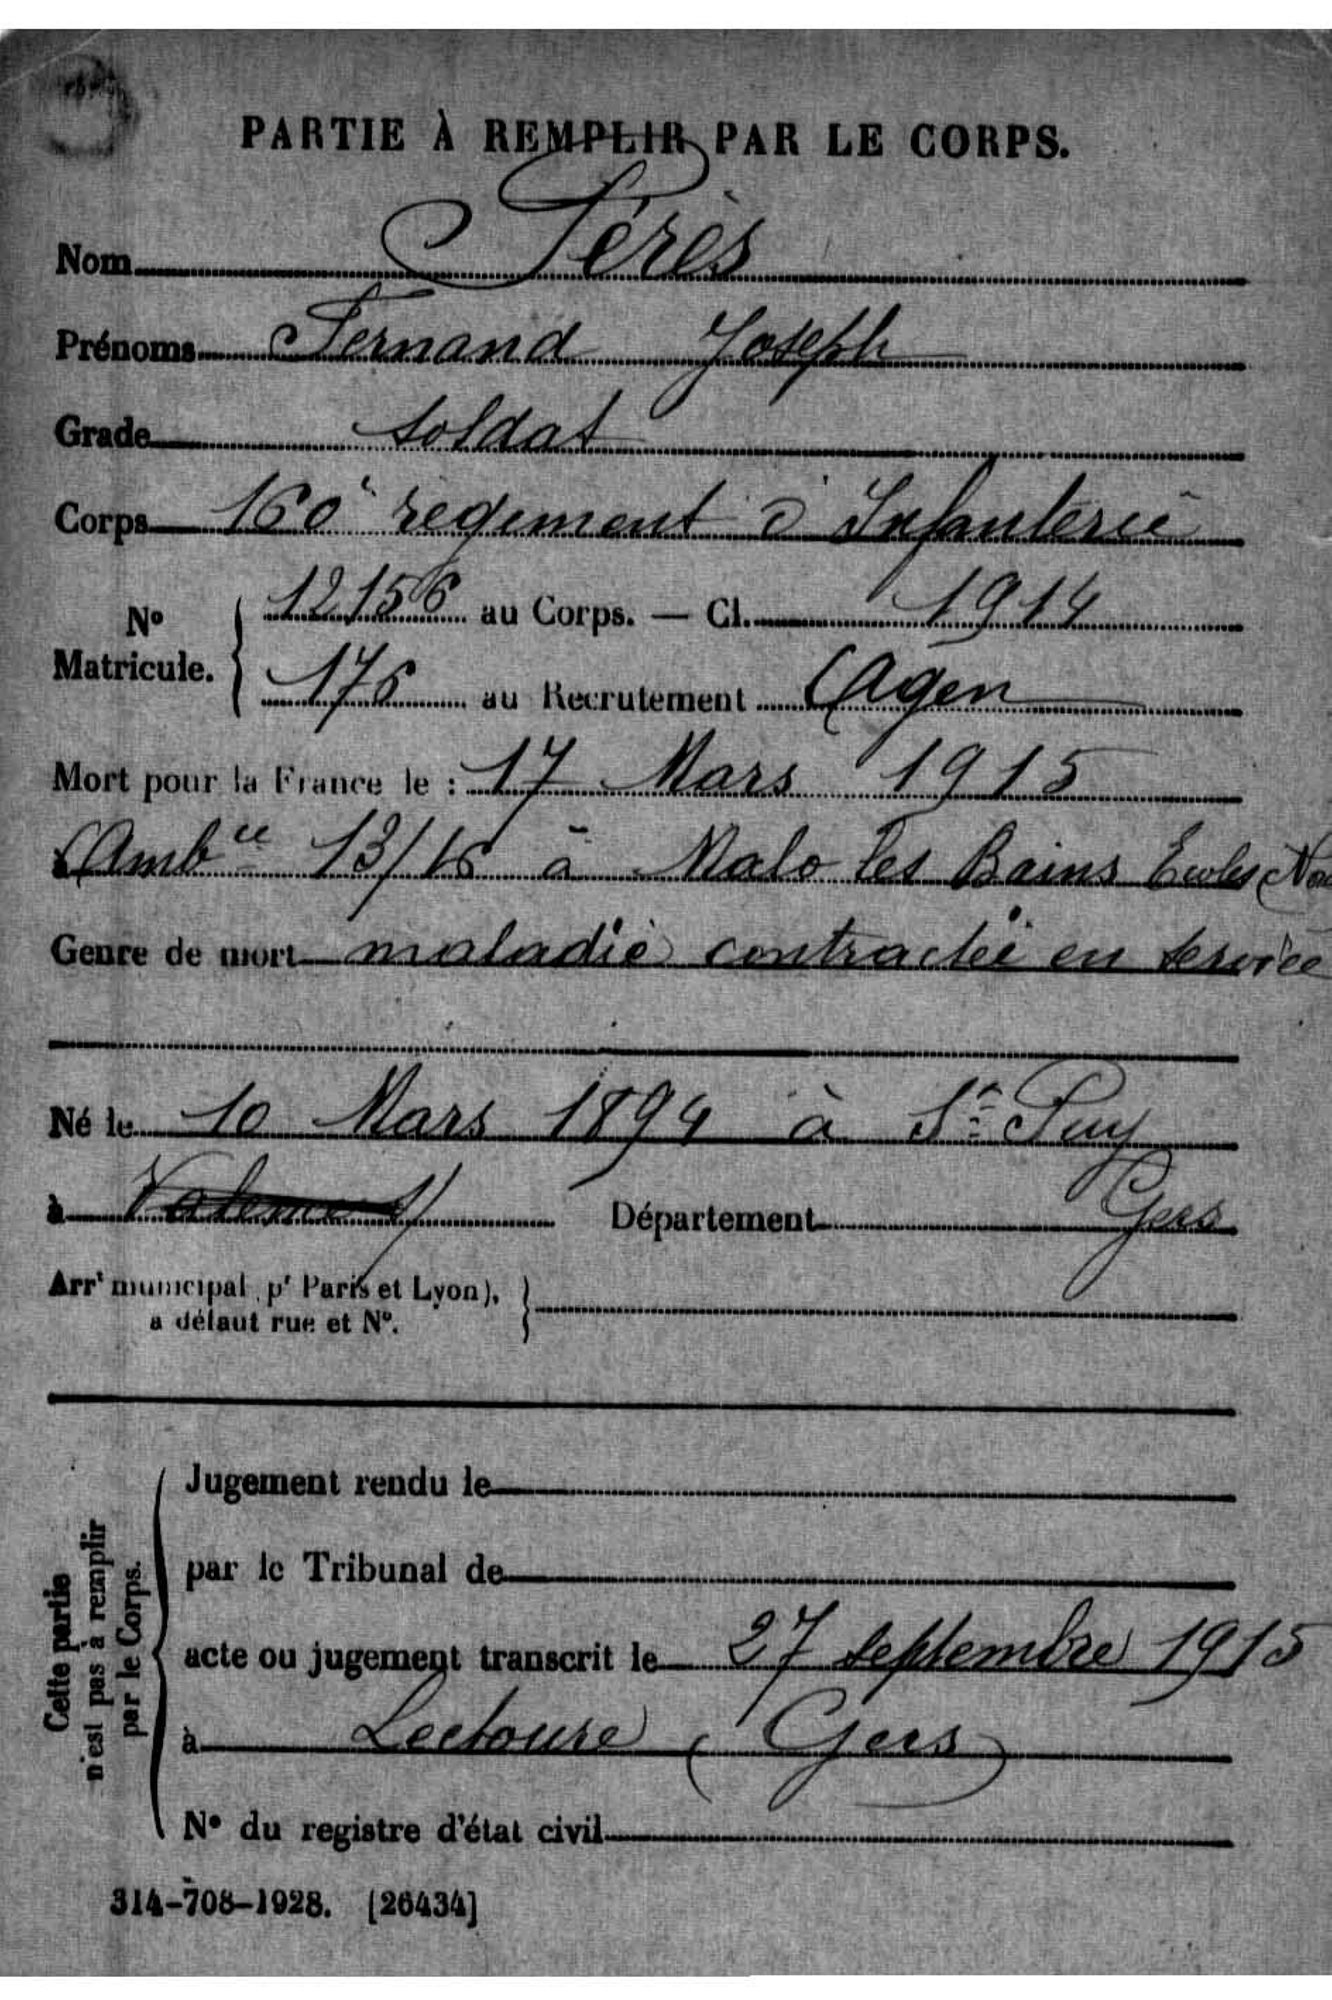 PARTIE À REMPLIR PAR LE CORPS.
Nom Pérès
Prénoms Fernand Joseph
Grade soldat
Corps 160e régiment d'Infanterie
No Matricule. { 12156 au Corps. — Cl. 1914
176 au Recrutement Agen
Mort pour la France le : 17 Mars 1915
à Ambce 13/16 à Malo les Bains Ecoles
Genre de mort maladie contractée en service
Né le 10 Mars 1894 à St Puy
à Département Gers
Arrt municipal pr Paris et Lyon),
a défaut rue et No.
Cette partie
n'est pas à remplir
par le Corps.
Jugement rendu le
par le Tribunal de
acte ou jugement transcrit le 27 septembre 1915
à Lectoure (Gers)
No du registre d'état civil
314-708-1928. [26434]